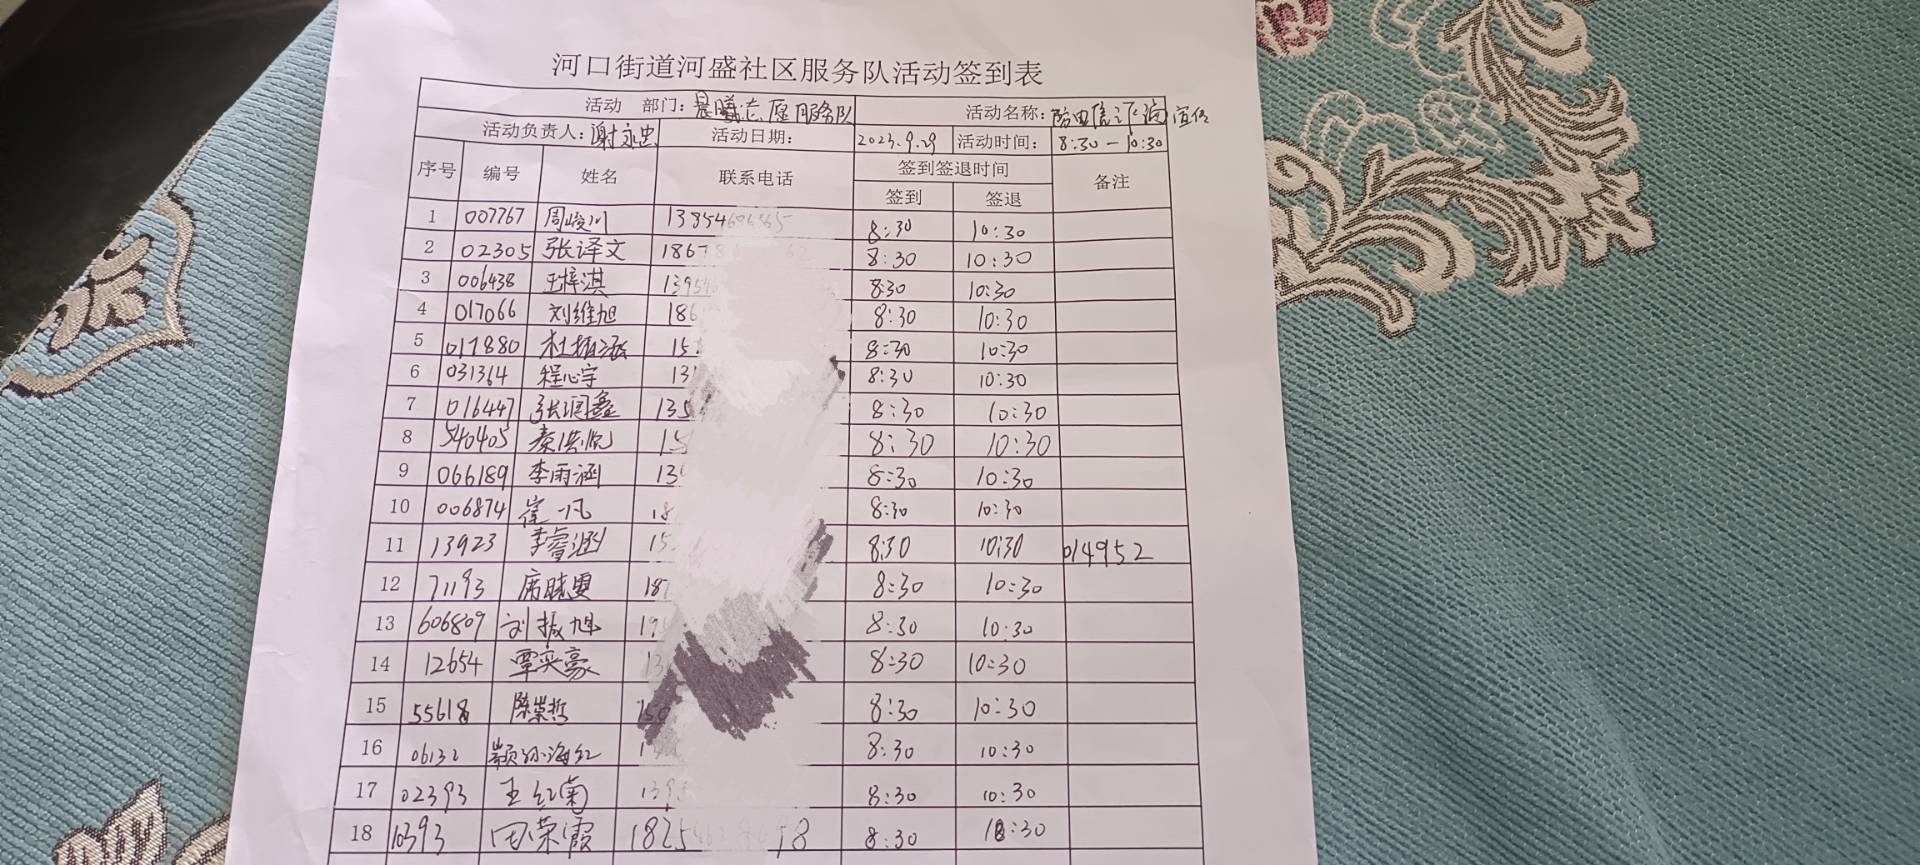 河口街道河盛社区服务队活动签到表
活动 部门：晨曦志愿服务队 活动名称：防电信诈骗宣传
活动负责人：谢永忠 活动日期： 2023.9.29 活动时间： 8:30-10:30
序号 编号 姓名 联系电话 签到签退时间 备注
签到 签退
1 007767 周峻川 8:30 10:30
2 02305 张译文 8:30 10:30
3 006438 王梓淇 8:30 10:30
4 017066 刘维旭 186 8:30 10:30
5 017880 15 8:30 10:30
6 031364 程心宇 131 8:30 10:30
7 016447 张润鑫 135 8:30 10:30
8 540405 8:30 10:30
9 066189 李雨涵 8:30 10:30
10 006874 崔一凡 18 8:30 10:30
11 13923 李睿涵 15 8:30 10:30 014952
12 71193 席晓雯 187 8:30 10:30
13 606809 刘振旭 8:30 10:30
14 12654 覃奕豪 8:30 10:30
15 55618 陈崇哲 8:30 10:30
16 06132 颛孙海红 8:30 10:30
17 02393 王红菊 8:30 10:30
18 10393 田荣霞 1825 8:30 10:30